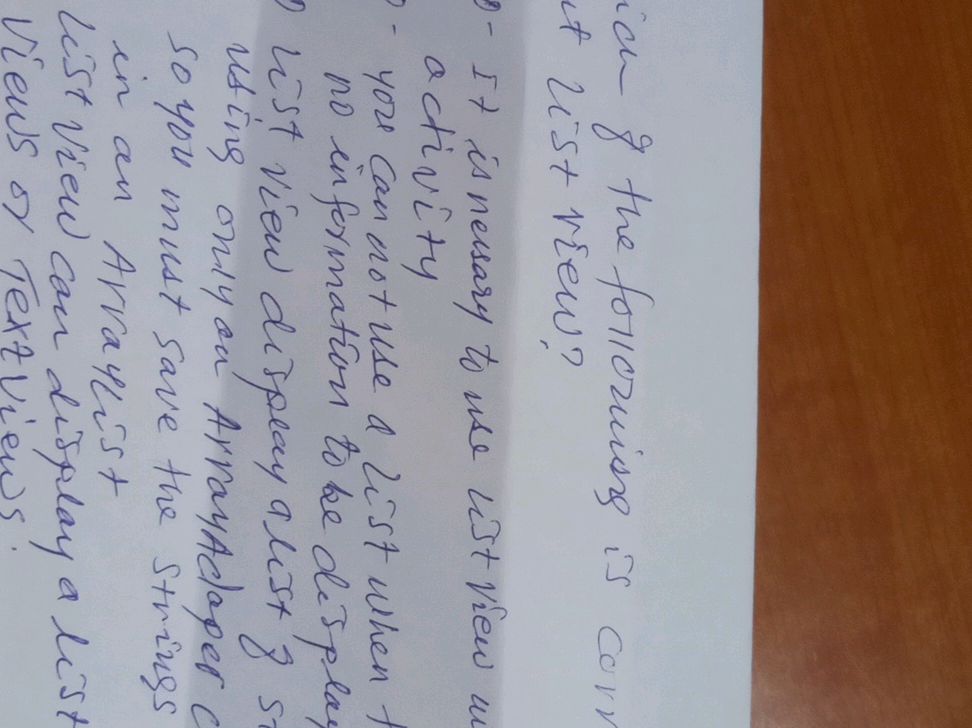 of the following is
List view?
- It is nessary to use list view
activity
- you can not use a list when
no information to be display
List view display a list of
using only an ArrayAdaper
so you must save the strings
in an Arraylist
List view can display a list
Views or TextViews.